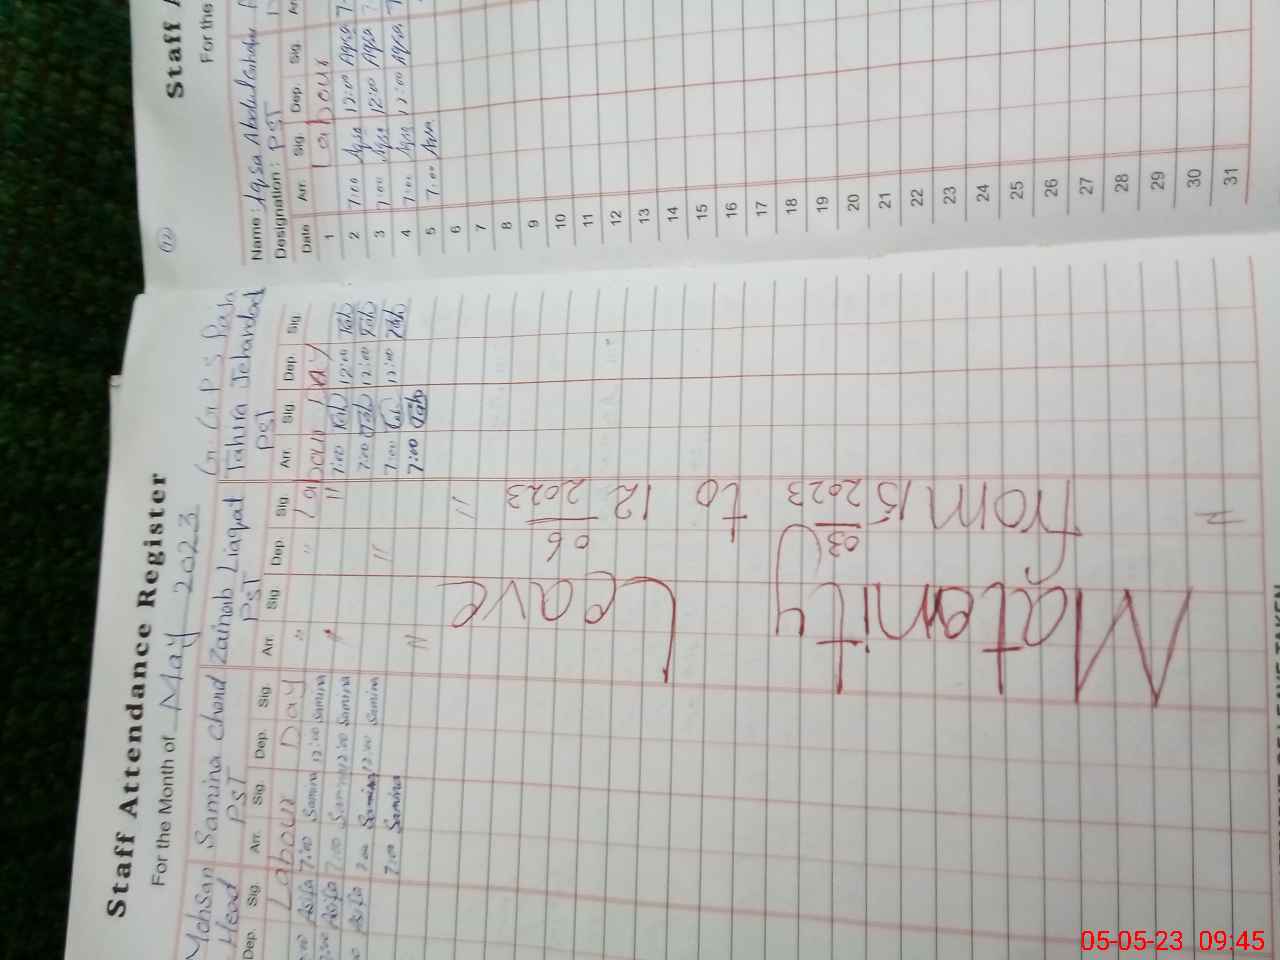 Staff Attendance Register
For the Month of May 2023 G.G.P.S
Mohsan Samina Chand Zainab Liaqat Tahira Jehandad
Head PST PST PST
Dep. Sig. Arr. Sig. Dep. Sig. Arr. Sig. Dep. Sig. Arr. Sig. Dep. Sig.
Labour Day " " Labour Day
Asifa 7:00 Samina 12:00 Samina " 7:00 Tah 12:00 Tah
Asifa 7:00 Samina 12:00 Samina 7:00 Tah 12:00 Tah
Asifa 7:00 Samina 12:00 Samina " 7:00 Tah 12:00 Tah
7:00 Samina " 7:00 Tah
"
Maternity Leave
from 15/03/2023 to 12/06/2023
=
Staff
For the
Name: Aqsa Abdul Ghafar
Designation: PST
Date Arr. Sig. Dep. Sig.
1 Labour
2 7:00 Aqsa 12:00 Aqsa
3 7:00 Aqsa 12:00 Aqsa
4 7:00 Aqsa 12:00 Aqsa
5 7:00 Aqsa
6
7
8
9
10
11
12
13
14
15
16
17
18
19
20
21
22
23
24
25
26
27
28
29
30
31
05-05-23 09:45